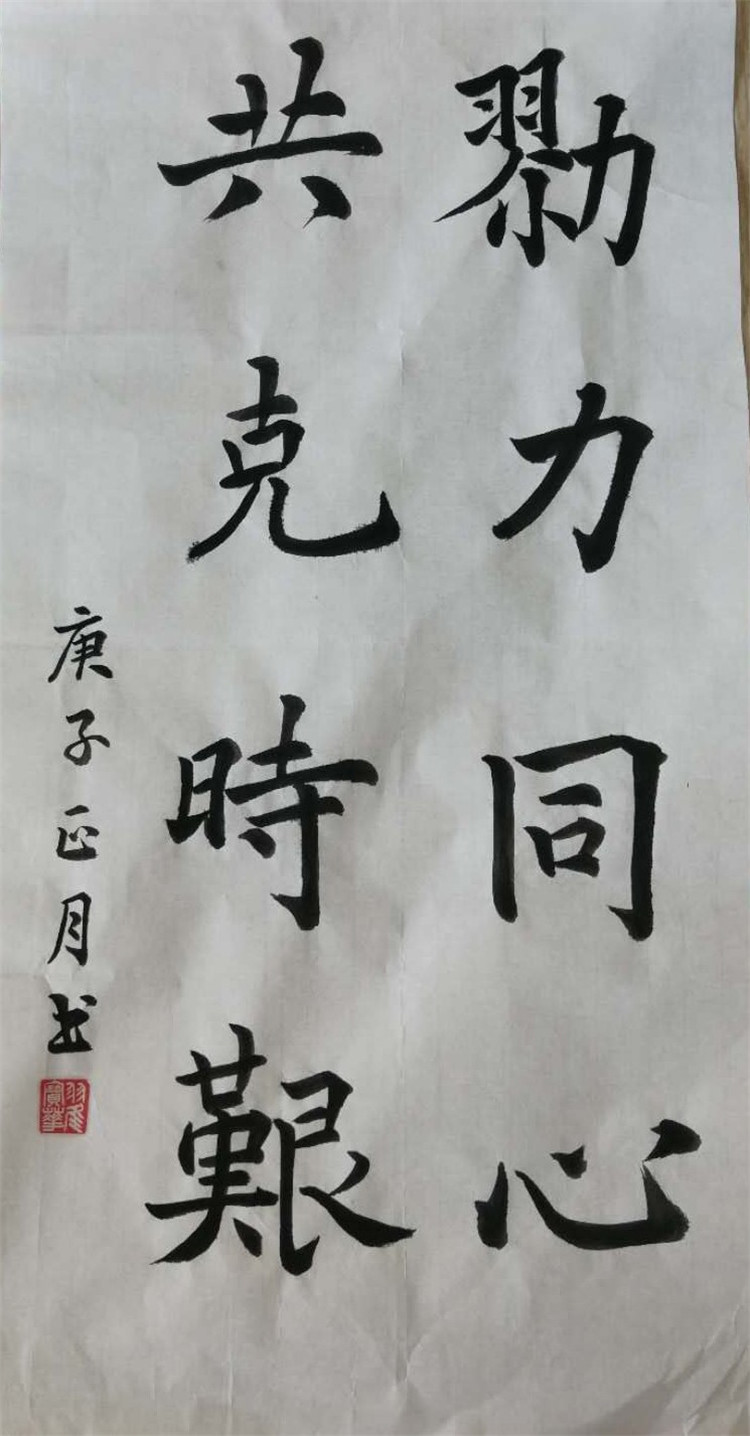 勠力同心
共克時艱
庚子正月书